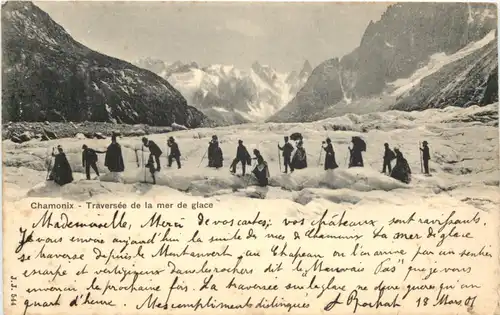 Chamonix - Traversée de la mer de glace
J.J. 544
Mademoiselle, Merci de vos cartes, vos châteaux sont ravissants
Je vous envoie aujourd'hui la suite de vues de Chamonix La mer de glace
se traverse depuis le Montanvert au Chapeau où l'on arrive par un sentier
escarpé et vertigineux dans les rochers dit le Mauvais Pas que je vous
enverrai la prochaine fois. La traversée sur la glace ne dure guères qu'un
quart d'heure. Mes compliments distingués J Rochat 18 Mars 01